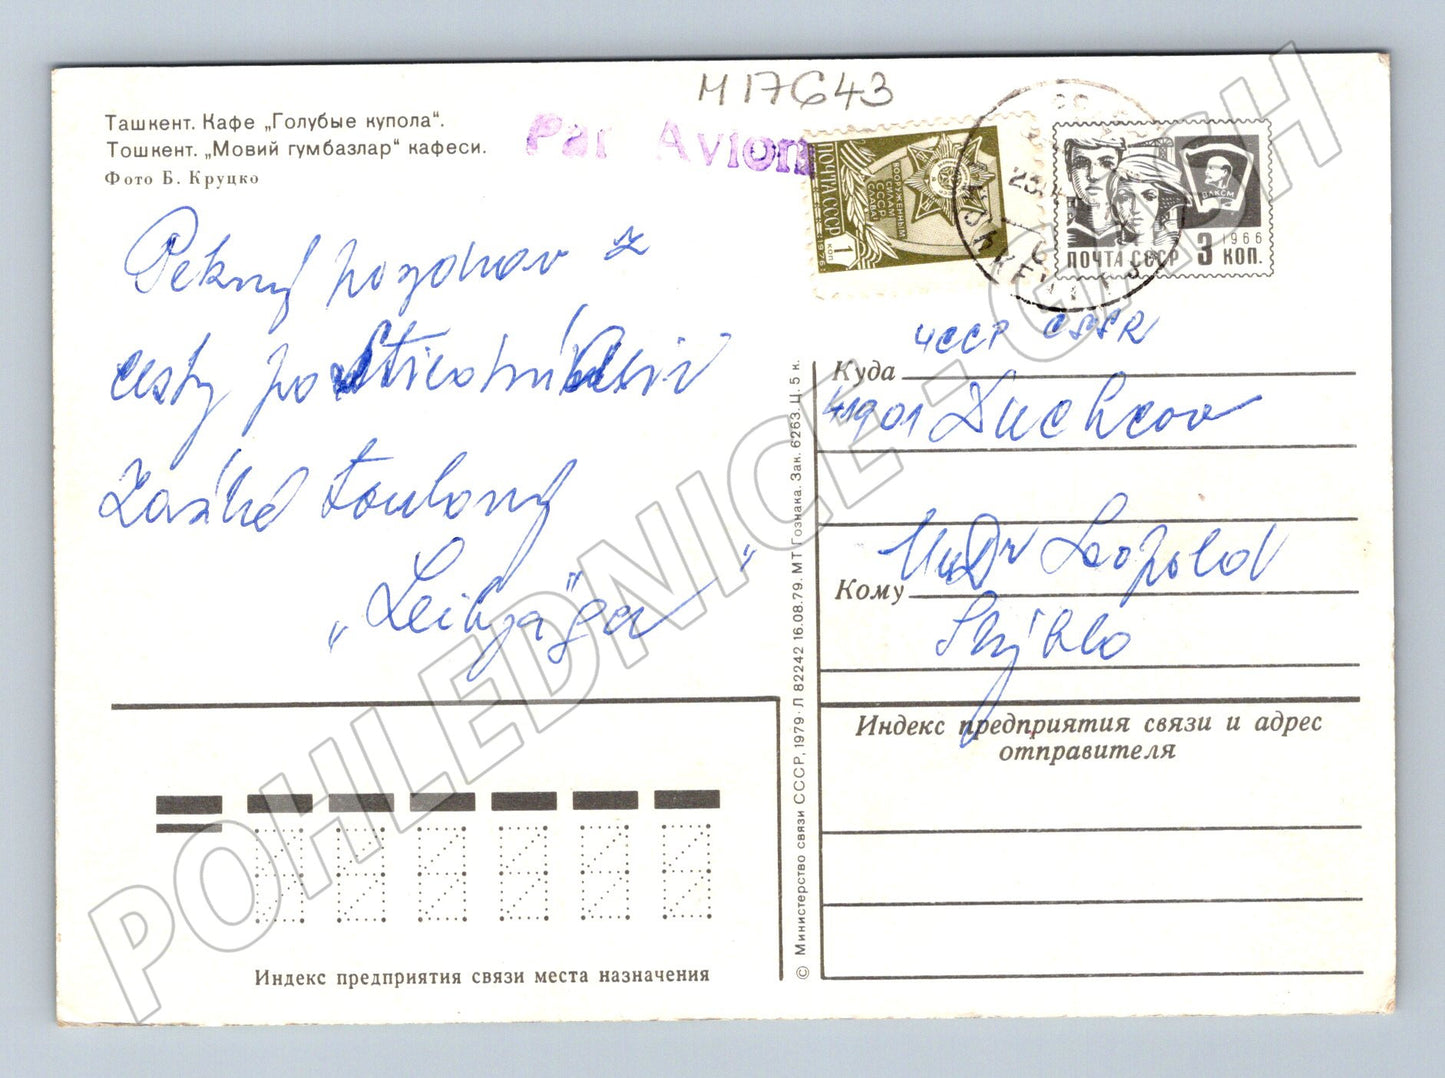 М17643
Ташкент. Кафе „Голубые купола“.
Тошкент. „Мовий гумбазлар“ кафеси.
Фото Б. Круцко
Par Avion
ПОЧТА СССР
ВООРУЖЕННЫМ
СИЛАМ
СССР
СЛАВА
1 КОП
1976
ВЛКСМ
1966
ПОЧТА СССР 3 КОП.
Pekný pozdrav z
cesty po
zasílá toulavý
„Leibjäger“
ЧССР ČSSR
Куда
41901 Duchcov
Кому
MuDr Leopold
Индекс предприятия связи и адрес
отправителя
Индекс предприятия связи места назначения
© Министерство связи СССР, 1979 · Л 82242 16.08.79. МТ Гознака. Зак. 6263. Ц. 5 к.
POHLEDNICE - CASH